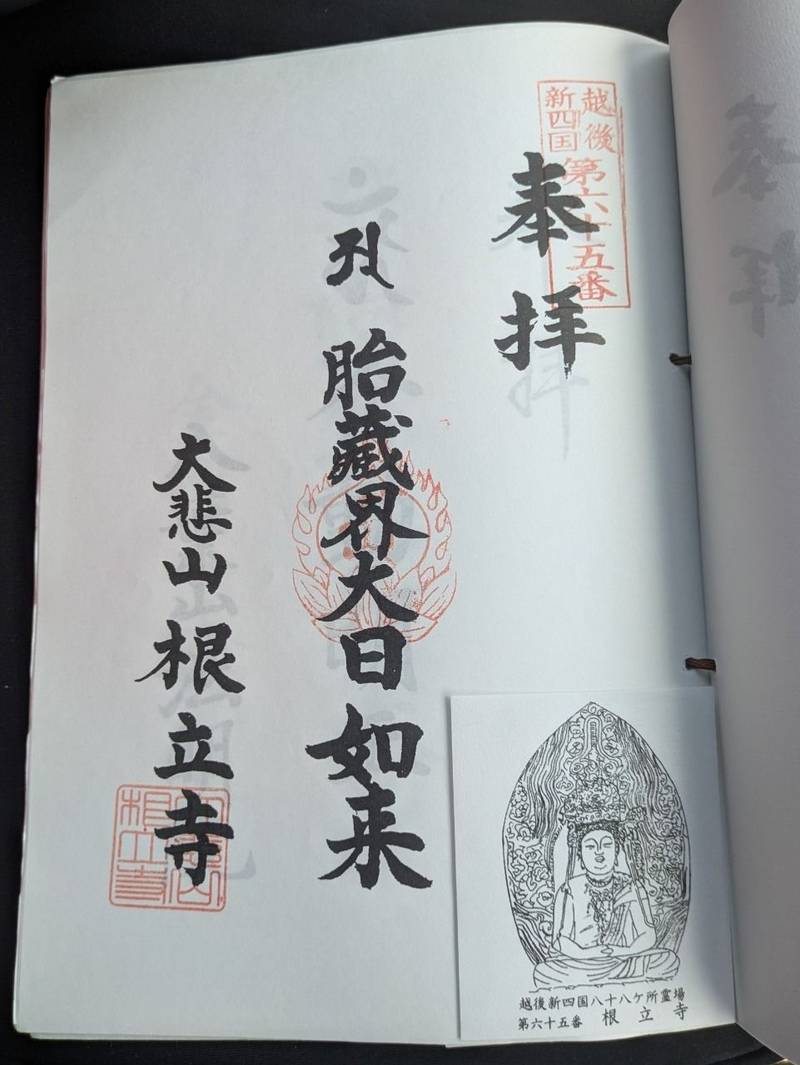 越後
新四国
第六十五番
奉拝
胎蔵界大日如来
大悲山根立寺
根立寺
越後新四国八十八ケ所霊場
第六十五番 根立寺